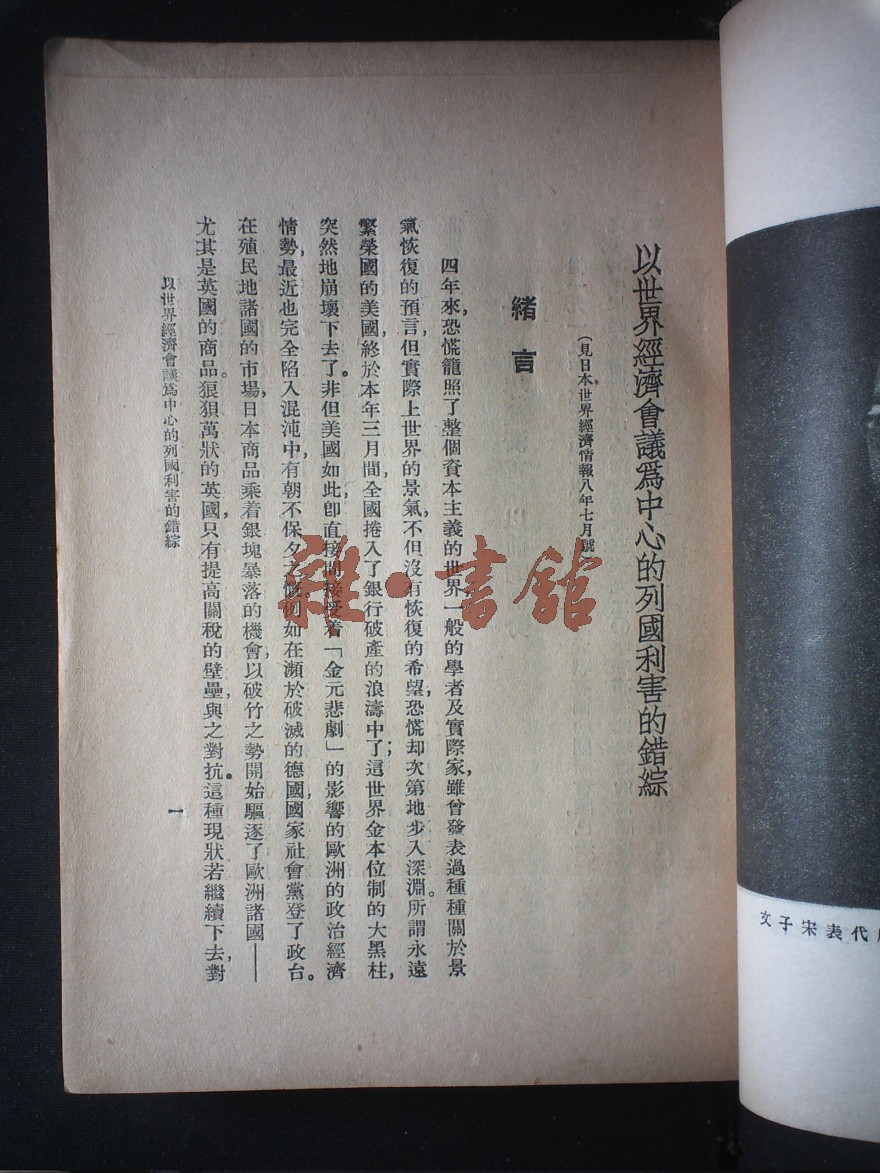 以世界經濟會議爲中心的列國利害的錯綜
(見日本世界經濟情報八年七月號)
緒言
四年來,恐慌籠照了整個資本主義的世界一般的學者及實際家,雖曾發表過種種關於景
氣恢復的預言,但實際上世界的景氣,不但沒有恢復的希望,恐慌却次第地步入深淵。所謂永遠
繁榮國的美國,終於本年三月間,全國捲入了銀行破產的浪濤中了;這世界金本位制的大黑柱,
突然地崩壞下去了。非但美國如此,卽直接間接受着「金元悲劇」的影響的歐洲的政治經濟
情勢,最近也完全陷入混沌中,有朝不保夕之慨。例如在瀕於破滅的德國,國家社會黨登了政台。
在殖民地諸國的市場,日本商品乘着銀塊暴落的機會,以破竹之勢開始驅逐了歐洲諸國——
尤其是英國的商品。狼狽萬狀的英國,只有提高關稅的壁壘,與之對抗。這種現狀若繼續下去,對
以世界經濟會議爲中心的列國利害的錯綜
一
雜·書館
文子宋表代